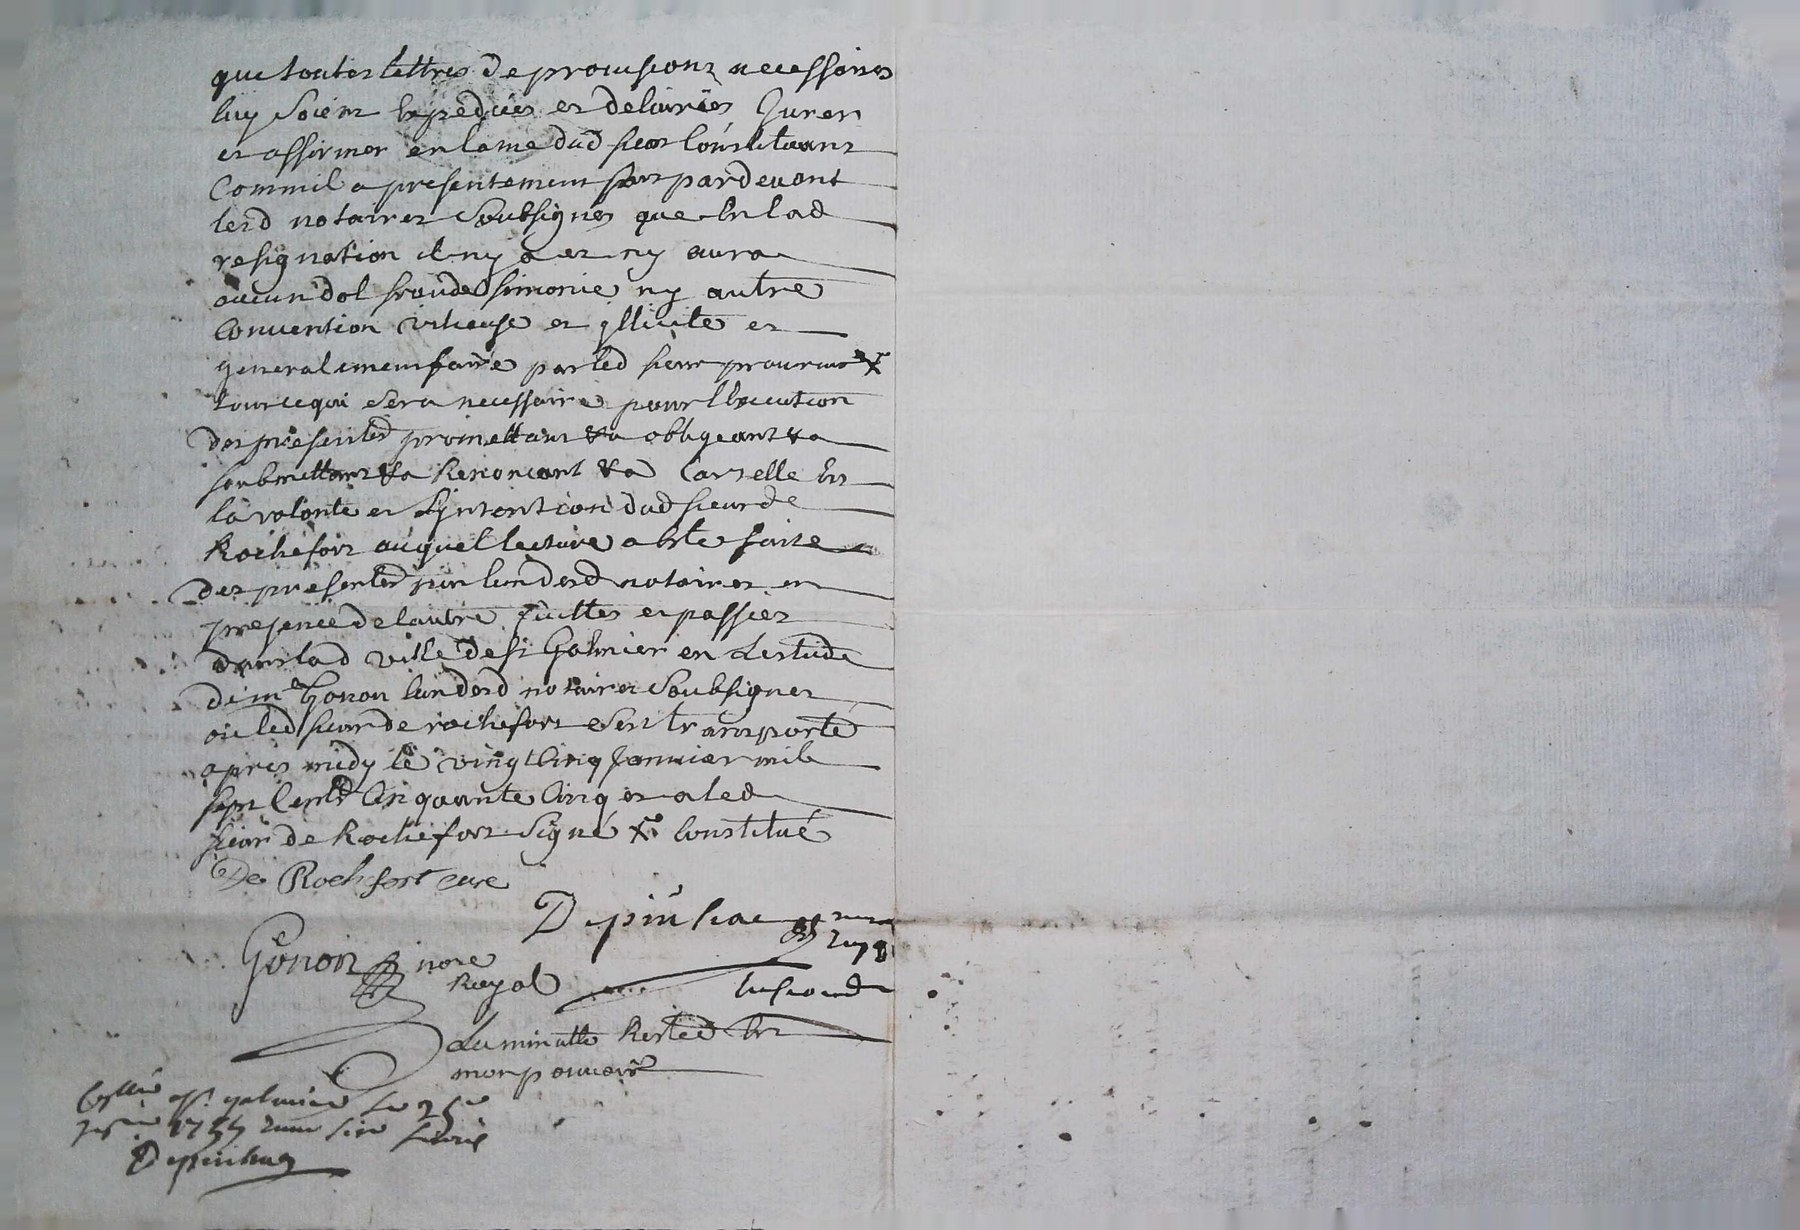 que toutes lettres de provisions necessaires
luy soient expediées et delivrées Jurer
et affirmer en lame dud sieur Constituant
Comm'il a presentement fait pardevant
lesd notaires soubsignés que en lad
resignation il ny a et ny aura
aucun dol fraude simonie ny autre
Convention vitieuse et jllicite et
generalement faire par led sieur procureur X
tout ce qui sera necessaire pour lexecution
des presentes promettant &a obligeant &a
soubmettant &a Renoncant &a Car telle est
la volonté et L'jntention dud sieur de
Rochefort auquel lecture a este faite
des presentes par lun desd notaires en
presence de lautre faittes et passées
dans lad ville de St Galmier en Lestude
de me Gonon lun desd notaires soubsignes
ou led sieur de rochefort sest transporté
apres midy le vingt cinq Janvier mil
sept cents cinquante cinq et a led
sieur de Rochefort signé X constitué
De Rochefort curé
Depinhac
Gonon nore
Royal
La minutte Restée en
mon pouvoir
a st galmier le 25e
1755
Depinhac